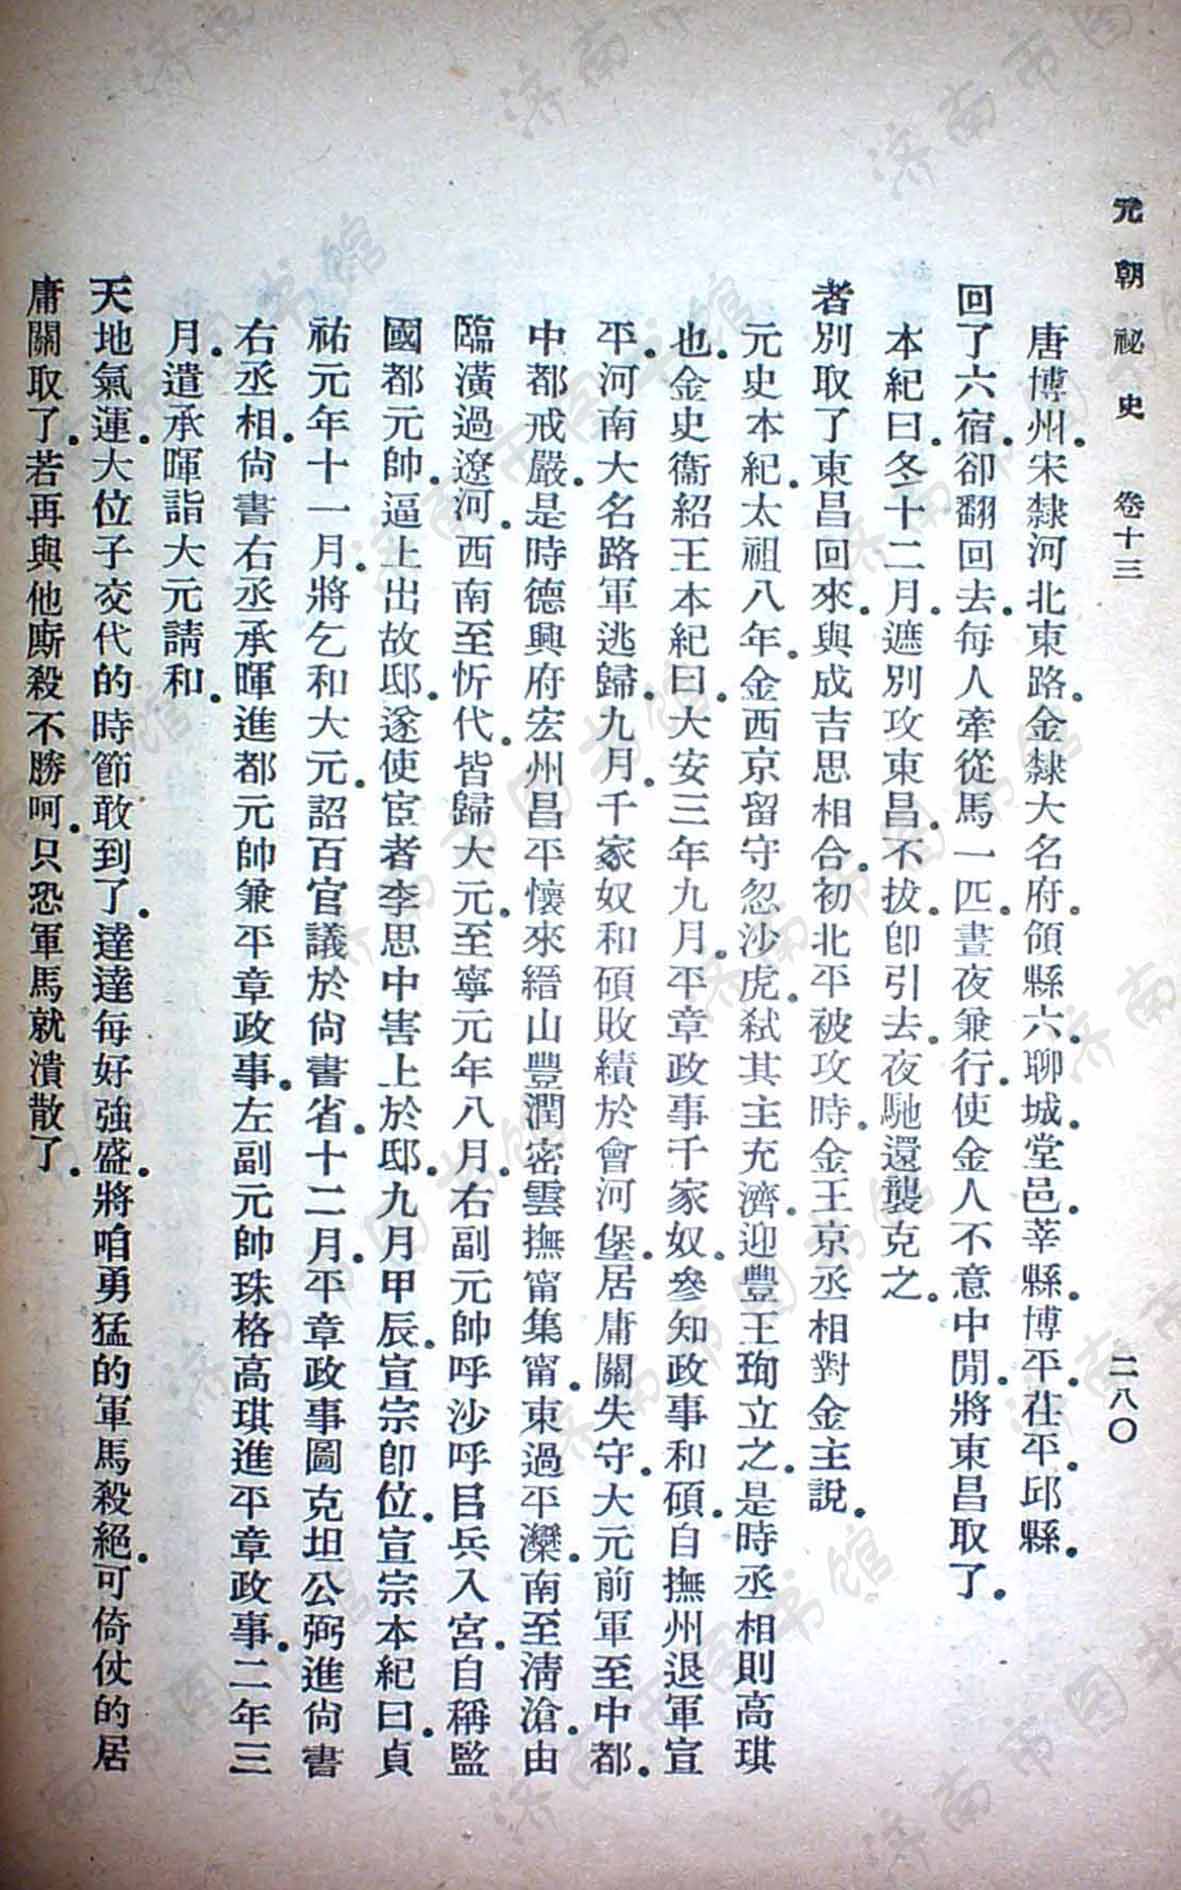 元朝祕史 卷十三 二八〇
唐博州。宋隸河北東路。金隸大名府。領縣六。聊城。堂邑。莘縣。博平。茌平。邱縣。
回了六宿。卻翻回去。每人牽從馬一匹。晝夜兼行。使金人不意中閒。將東昌取了。
本紀曰。冬十二月。遮別攻東昌。不拔。卽引去。夜馳還襲克之。
者別取了東昌回來。與成吉思相合。初北平被攻時。金王京丞相對金主說。
元史本紀。太祖八年。金西京留守忽沙虎。弒其主充濟。迎豐王珣立之。是時丞相則高琪
也。金史衞紹王本紀曰。大安三年九月。平章政事千家奴。參知政事和碩。自撫州退軍宣
平。河南大名路軍逃歸。九月。千家奴和碩敗績於會河堡。居庸關失守。大元前軍至中都。
中都戒嚴。是時德興府宏州昌平懷來縉山豐潤密雲撫甯集甯。東過平灤。南至淸滄。由
臨潢過遼河。西南至忻代。皆歸大元。至寧元年八月。右副元帥呼沙呼吕兵入宮。自稱監
國都元帥。逼上出故邸。遂使宦者李思中害上於邸。九月甲辰。宣宗卽位。宣宗本紀曰。貞
祐元年十一月。將乞和大元。詔百官議於尙書省。十二月。平章政事圖克坦公弼進尙書
右丞相。尙書右丞承暉進都元帥兼平章政事。左副元帥珠格高琪進平章政事。二年三
月。遣承暉詣大元請和。
天地氣運。大位子交代的時節敢到了。達達每好強盛。將咱勇猛的軍馬殺絕。可倚仗的居
庸關取了。若再與他廝殺不勝呵。只恐軍馬就潰散了。
济南市图书馆